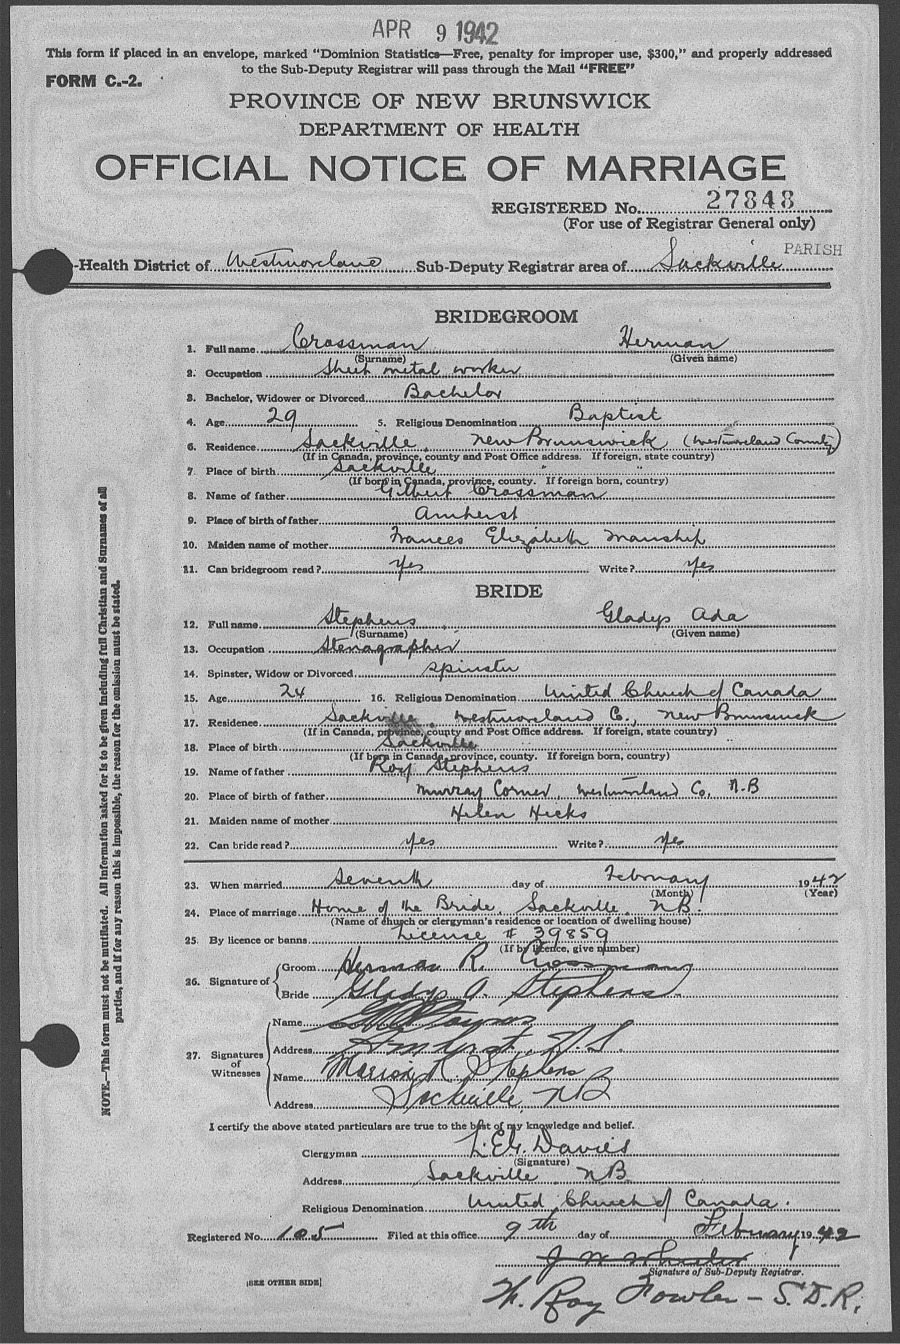 APR 9 1942
This form if placed in an envelope, marked "Dominion Statistics—Free, penalty for improper use, $300," and properly addressed
to the Sub-Deputy Registrar will pass through the Mail "FREE"
FORM C.-2.
PROVINCE OF NEW BRUNSWICK
DEPARTMENT OF HEALTH
OFFICIAL NOTICE OF MARRIAGE
REGISTERED No. 27848
(For use of Registrar General only)
PARISH
-Health District of Westmorland Sub-Deputy Registrar area of Sackville
BRIDEGROOM
1. Full name Crossman Herman
(Surname) (Given name)
2. Occupation Sheet metal worker
3. Bachelor, Widower or Divorced Bachelor
4. Age 29 5. Religious Denomination Baptist
6. Residence Sackville New Brunswick (Westmorland County)
(If in Canada, province, county and Post Office address. If foreign, state country)
7. Place of birth Sackville " "
(If born in Canada, province, county. If foreign born, country)
8. Name of father Gilbert Crossman
9. Place of birth of father Amherst
10. Maiden name of mother Frances Elizabeth Manship
11. Can bridegroom read? Yes Write? Yes
BRIDE
12. Full name Stephens Gladys Ada
(Surname) (Given name)
13. Occupation Stenographer
14. Spinster, Widow or Divorced Spinster
15. Age 24 16. Religious Denomination United Church of Canada
17. Residence Sackville, Westmorland Co., New Brunswick
(If in Canada, province, county and Post Office address. If foreign, state country)
18. Place of birth Sackville
(If born in Canada, province, county. If foreign born, country)
19. Name of father Roy Stephens
20. Place of birth of father Murray Corner, Westmorland Co, N.B
21. Maiden name of mother Helen Hicks
22. Can bride read? Yes Write? Yes
23. When married Seventh day of February 1942
(Month) (Year)
24. Place of marriage Home of the Bride, Sackville, NB.
(Name of church or clergyman's residence or location of dwelling house)
25. By licence or banns License # 39859
(If by licence, give number)
26. Signature of Groom Herman R. Crossman
Bride Gladys A. Stephens.
27. Signatures of Witnesses
Name
Address Amherst, N.S.
Name Marion R. Stephens
Address Sackville, NB
I certify the above stated particulars are true to the best of my knowledge and belief.
Clergyman L. E. G. Davies
(Signature)
Address Sackville NB
Religious Denomination United Church of Canada.
Registered No. 105 Filed at this office 9th day of February 1942
J W Wheeler
Signature of Sub-Deputy Registrar.
[SEE OTHER SIDE]
W. Roy Fowler – S.D.R.
NOTE.—This form must not be mutilated. All information asked for is to be given including full Christian and Surnames of all
parties, and if for any reason this is impossible, the reason for the omission must be stated.